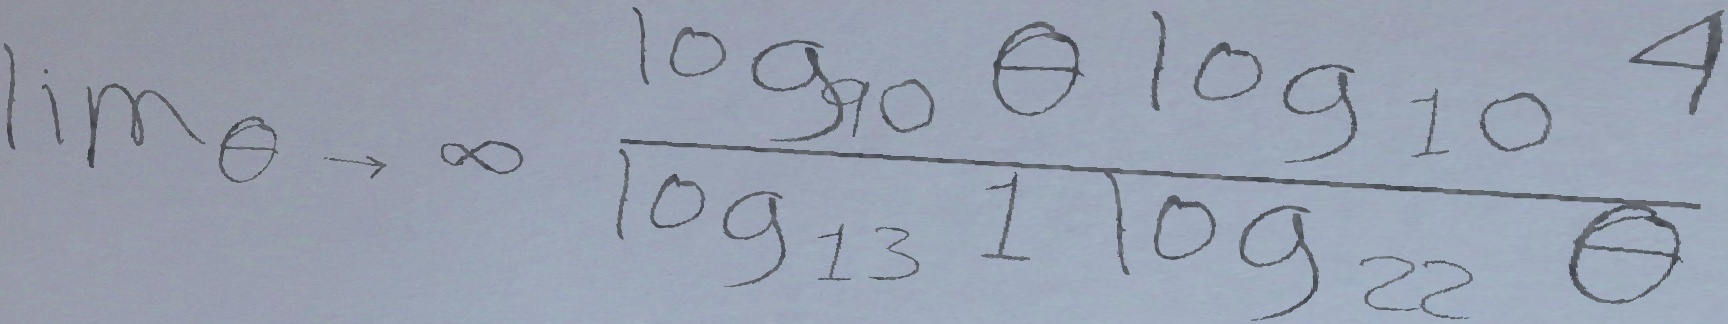 \lim_{\theta \to \infty} \frac{\log_{90} \theta \log_{10} 4}{\log_{13} 1 \log_{22} \theta}